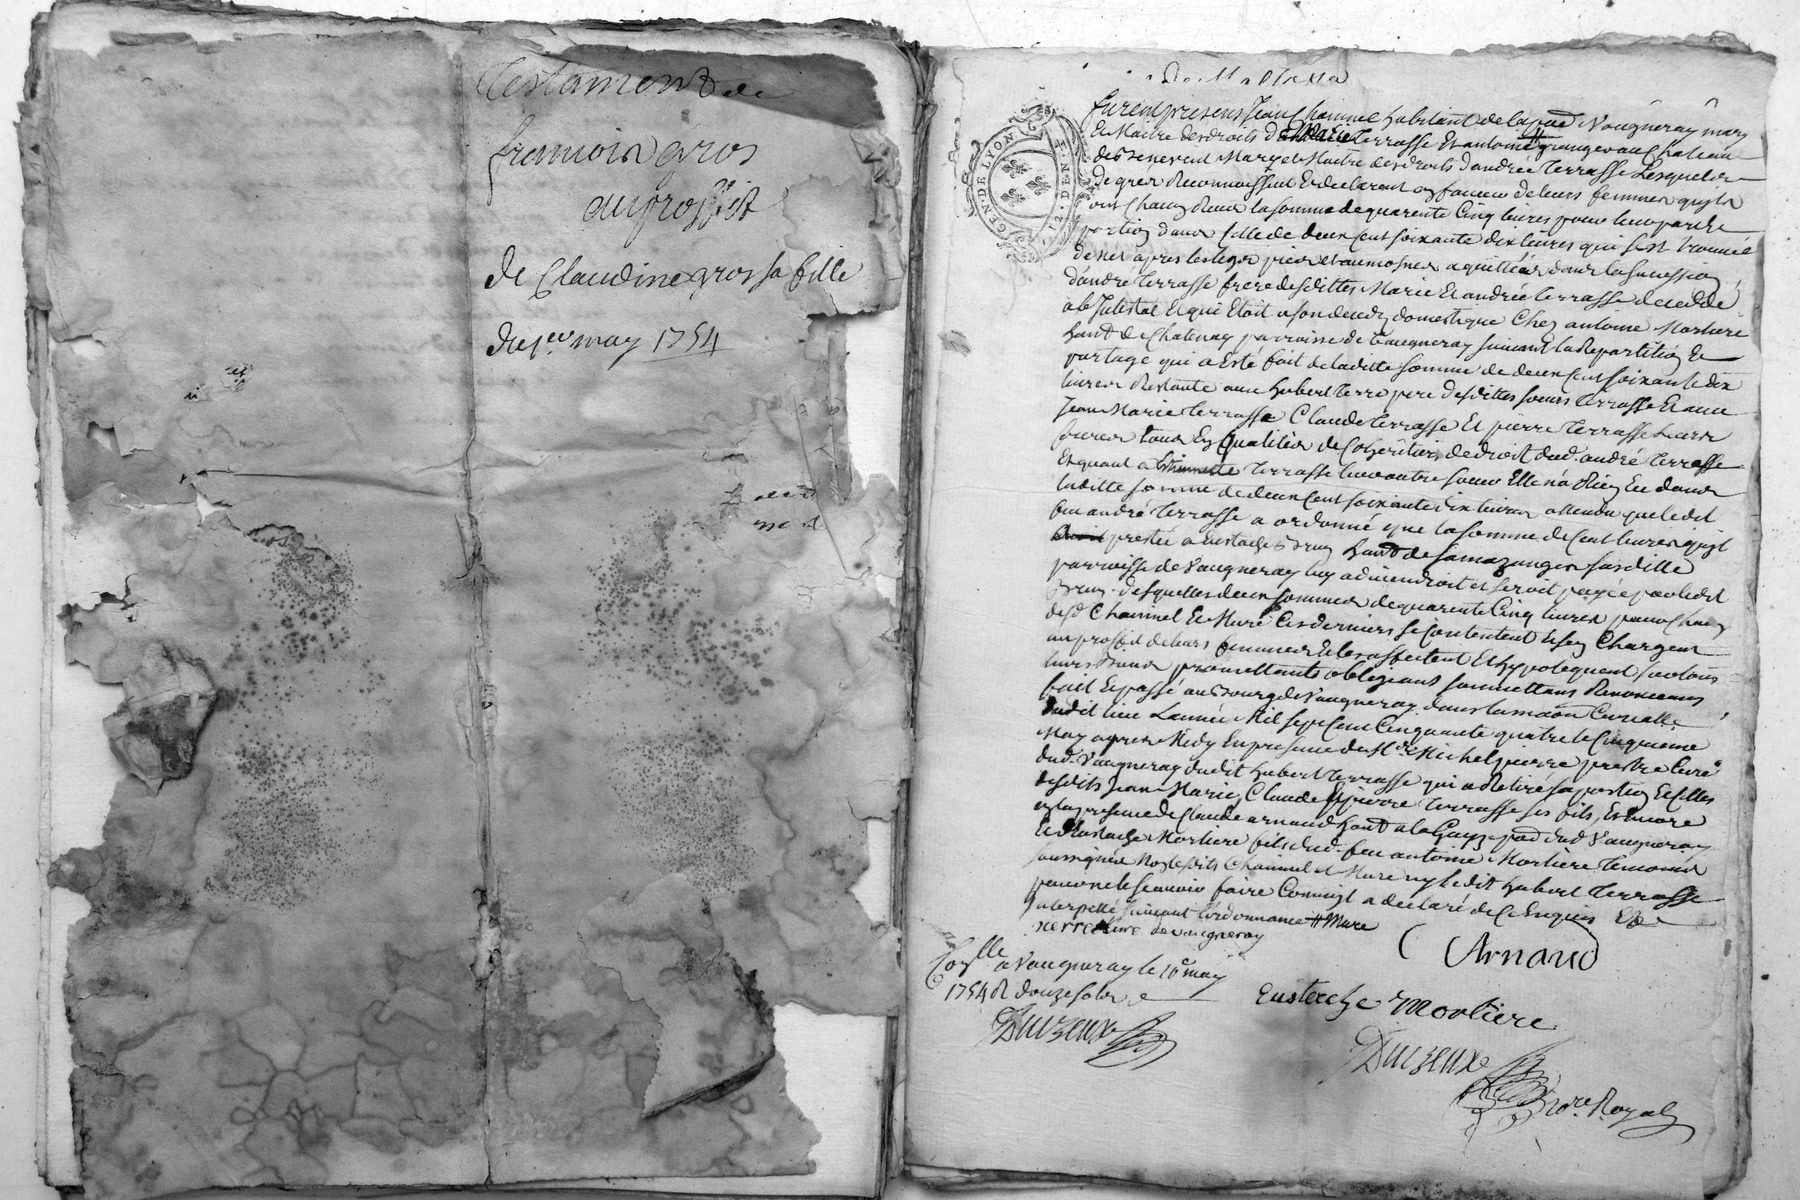 Testament de
francois gros
au proffit
de Claudine gros sa fille
du 1er may 1754
GEN. DE LYON
12. DEN
furent presens Jean Chainnel habitant de la parr. Vaugneray mary
Et Maitre des droits de Marie Terrasse Et antoine # granger au Chateau
de Benevent Mary et Maitre des droits d'andrée Terrasse Lesquels de
de gré Reconnoissent Et declarent en faveur de leurs femmes qu'ils
ont Chacun Reçu la somme de quarente Cinq livres pour leur part et
portion dans Celle de deux Cent soixante dix livres qui s'est trouvée
de net apres les legs pieux et aumosnes acquittées dans la succession
d'andré Terrasse frere desdittes Marie Et andrée Terrasse decedé
ab Intestat Et qui Etoit a son deced domestique Chez antoine Mortiere
habt de Chatenay parroisse de Vaugneray suivant la Repartition Et
partage qui a Esté fait de laditte somme de deux Cent soixante dix
livres Restante avec hubert Terre pere desdittes soeurs Terrasse Et avec
Jean Marie Terrasse Claude Terrasse Et pierre Terrasse leurs
freres tous En qualités de Coheritiers de droit dud. andré Terrasse
Et quant a Terrasse leur autre soeur Elle n'a Rien Eu dans
laditte somme de deux Cent soixante dix livres attendu que ledit
feu andré Terrasse a ordonné que la somme de Cent livres qu'il
avoit prestée a Eustache Brun habt de sasditte
parroisse de Vaugneray luy adviendroit et seroit payée par ledit
Brun. desquelles deux sommes de quarente Cinq livres pour Chacun
desd Chainnel Et Mure Ces derniers se Contentent Et s'en Chargent
au proffit de leurs femmes Et les affectent Et hypotequent sur tous
leurs Biens promettants obligeans soumettans Renonceans
fait Et passé au Bourg de Vaugneray dans la maison Curialle
dudit lieu L'année Mil sept Cent Cinquante quatre le Cinquieme
May apres Midy En presence de Mre Michel pierre prestre Curé
dud. Vaugneray dudit hubert Terrasse qui a Retiré sa portion Et Celles
desdits Jean Marie, Claude Et pierre Terrasse ses fils, Et Encore
En la presence de Claude arnaud habt a la parr dud Vaugneray
Et Eustache Mortiere fils dud. feu antoine Mortiere temoins
soussignés Non lesdits Chainnel et Mure ny ledit hubert Terrasse
pour ne le sçavoir faire Comme il a declaré de Ce Enquis Et
Interpellé suivant l'ordonnance # Mure
pierre Curé de Vaugneray
C Arnaud
Conllé a Vaugneray le 10e may
1754 R douze sols
Eustache Mortiere
Duizeux
Duizeux
Nore. Royal